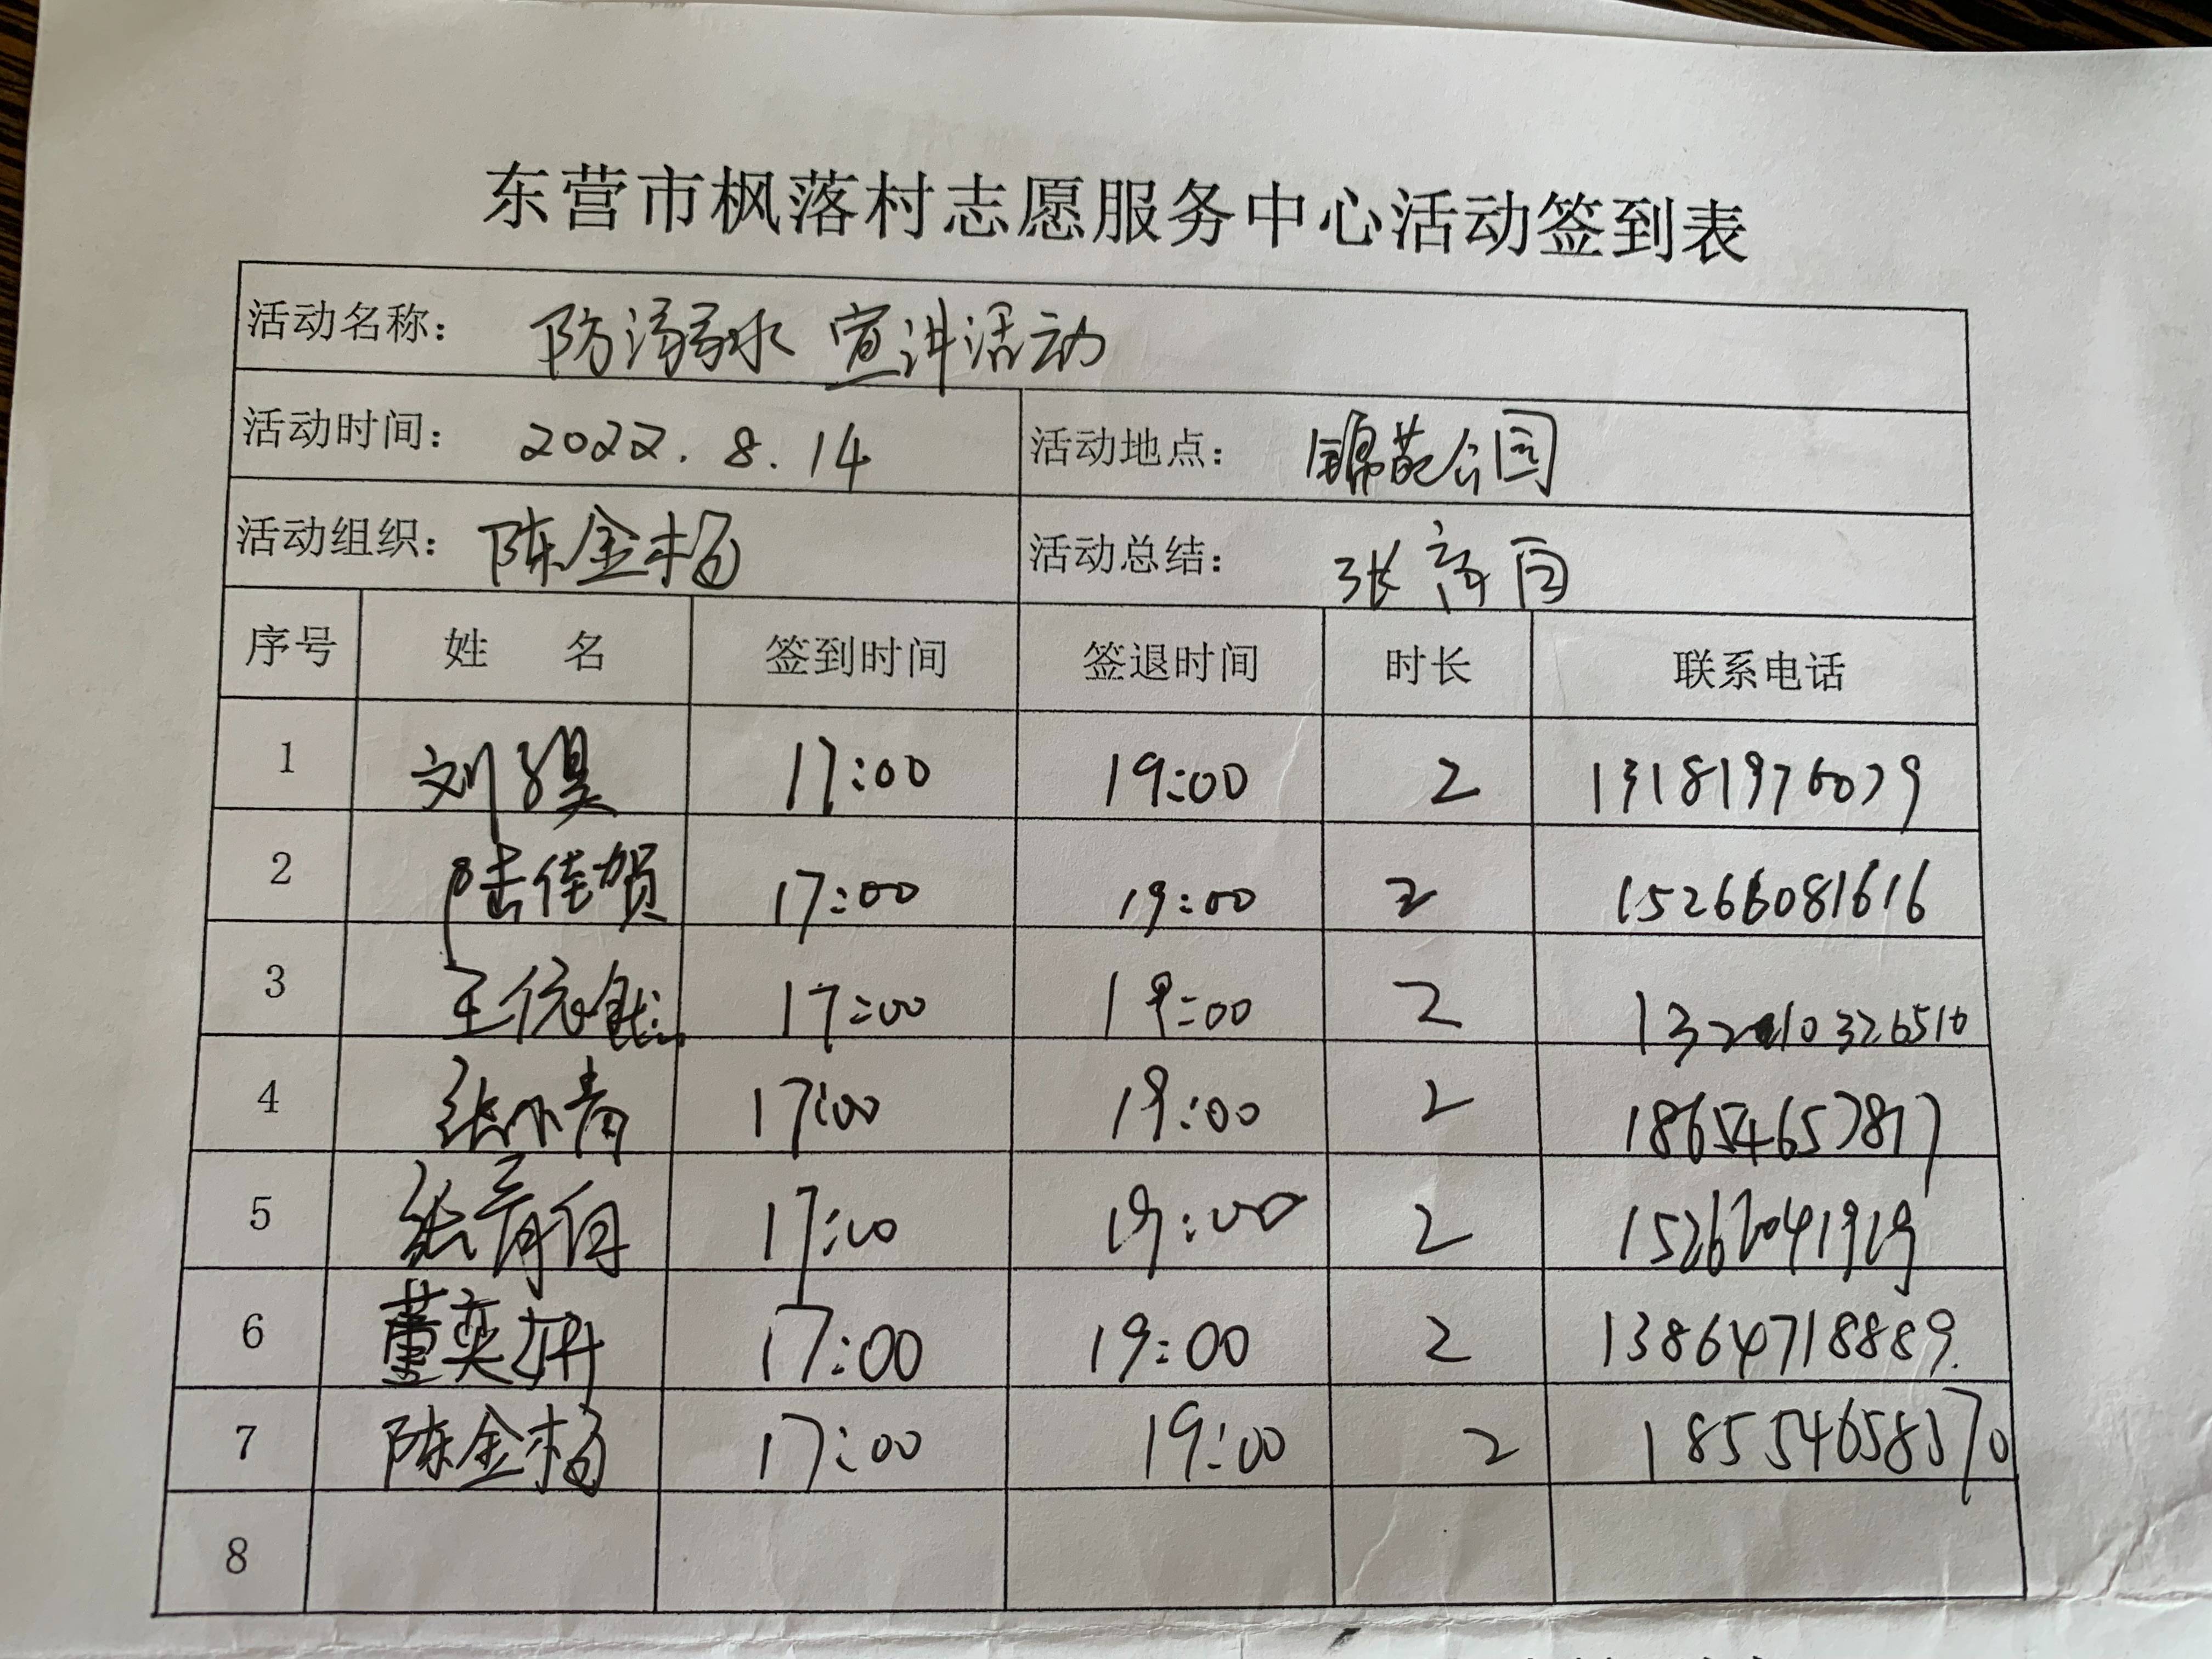 东营市枫落村志愿服务中心活动签到表
活动名称: 防溺水宣讲活动
活动时间: 2022.8.14 活动地点: 锦苑公园
活动组织: 陈金杨 活动总结: 张
序号 姓 名 签到时间 签退时间 时长 联系电话
1 刘 17:00 19:00 2 13181976079
2 陆佳贺 17:00 19:00 2 15266081616
3 王 17:00 19:00 2
4 张 青 17:00 19:00 2 18654657817
5 张 17:00 19:00 2
6 董奕妍 17:00 19:00 2 13864718889.
7 陈金杨 17:00 19:00 2 18554658370
8